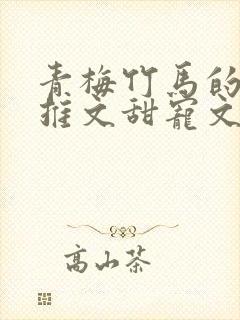 青梅竹马的
推文甜宠文
高山茶